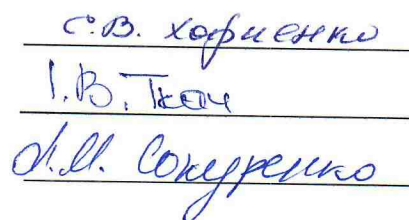 С.В. Хофиенко
І.В. Ткач
Л.М. Сокуренко